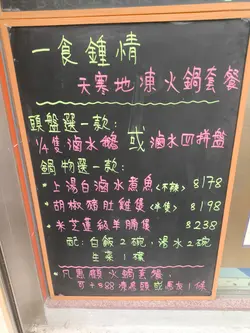 一食鍾情
天寒地凍火鍋套餐
頭盤選一款:
¼隻滷水鵝 或 滷水四拼盤
鍋物選一款:
×上湯白滷水煮魚(不辣) $178
×胡椒豬肚雞隻(半隻) $198
×米芝蓮級羊腩隻 $238
配:白飯2碗,湯水2碗
生菜1碟
×凡惠顧火鍋套餐,
可+$88
或
1條